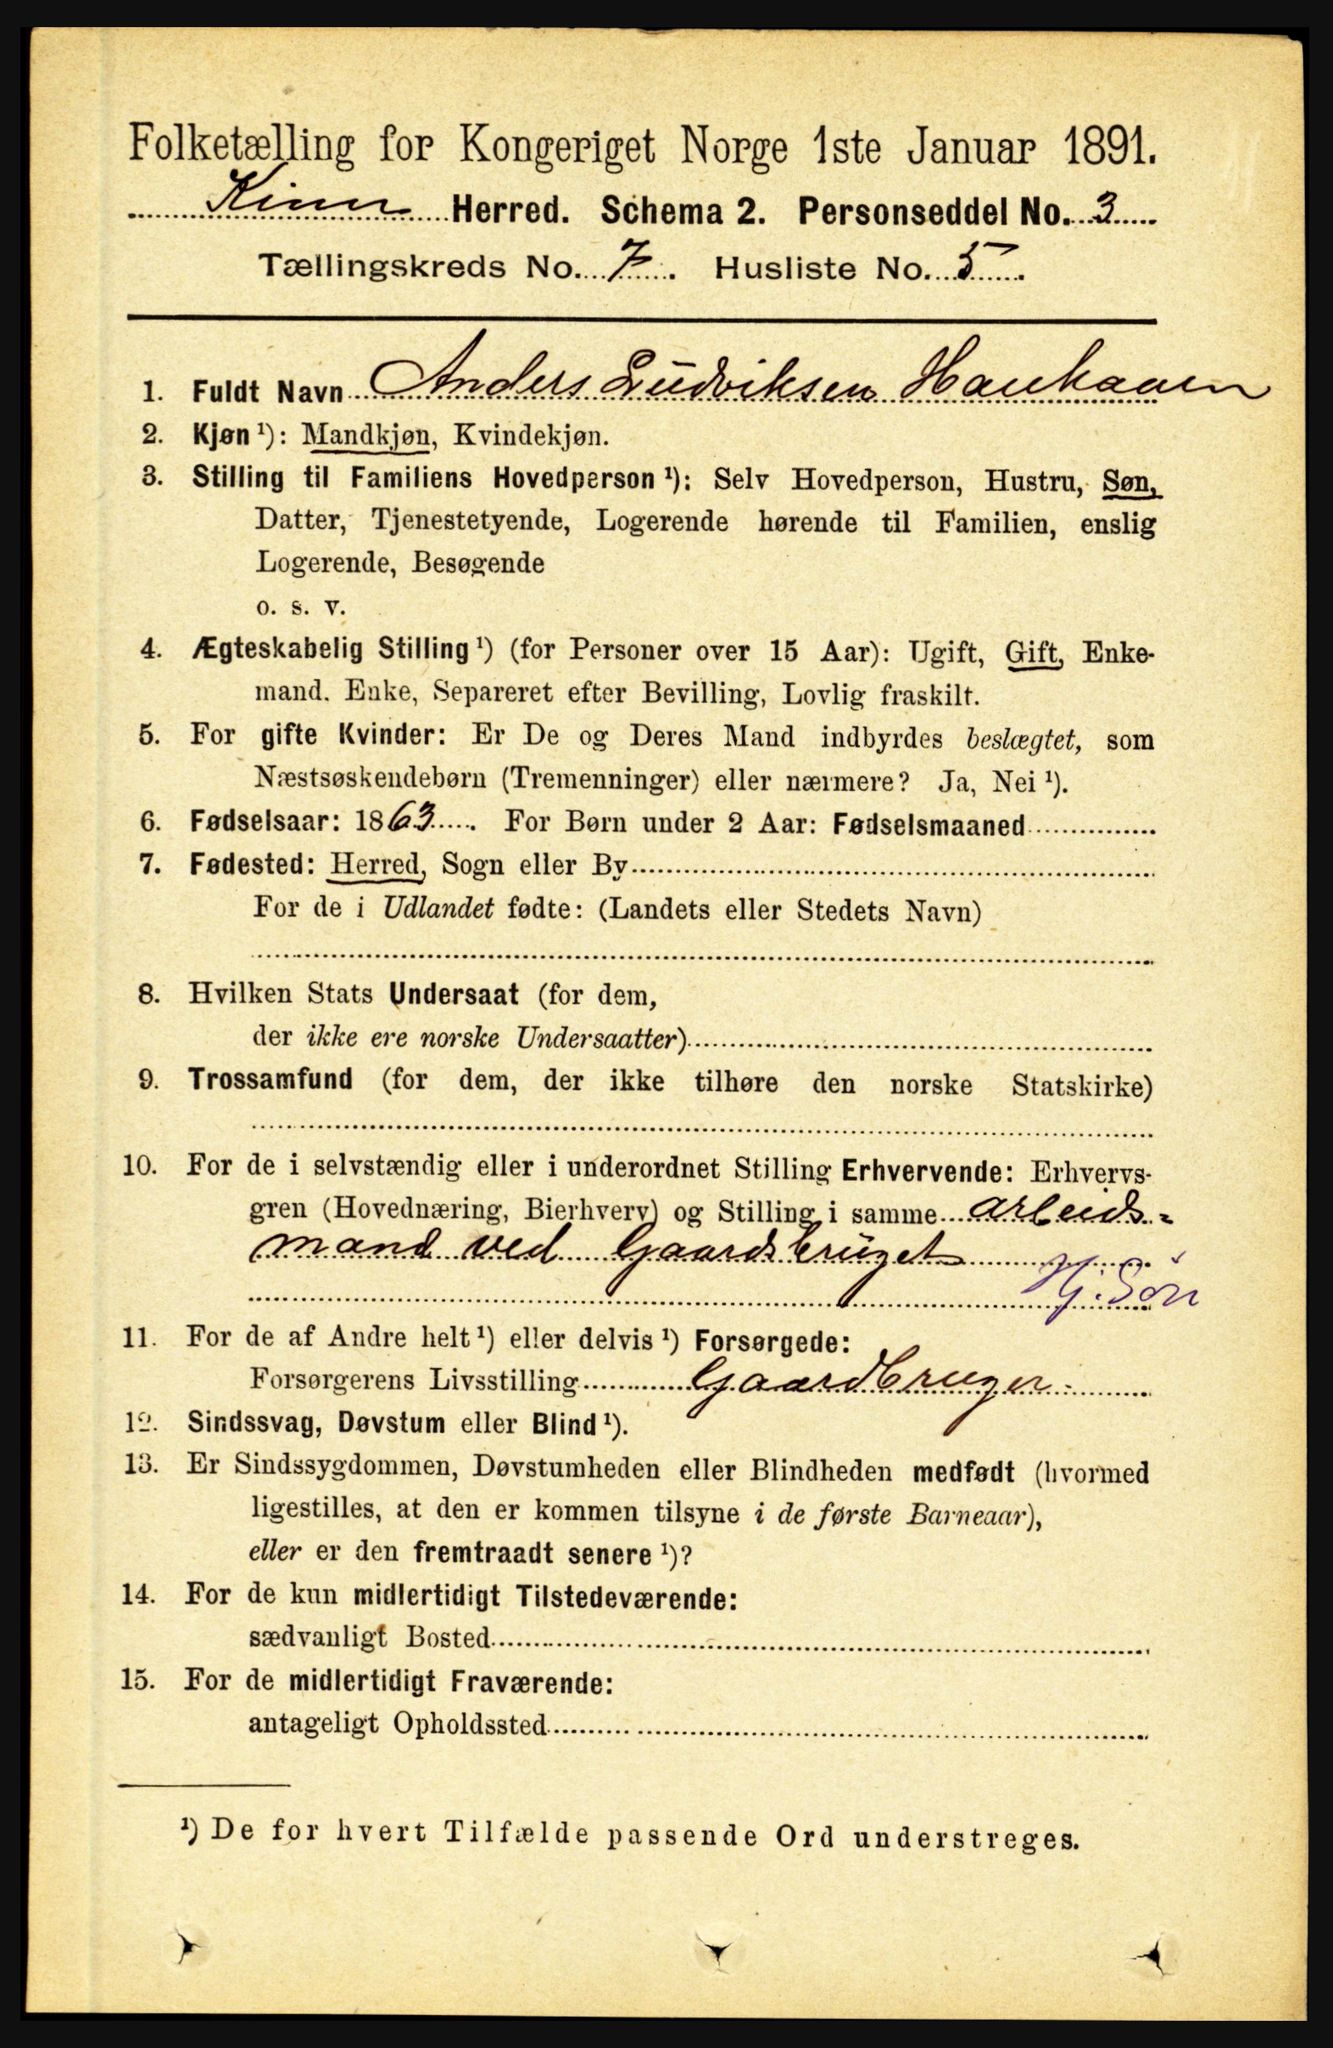 Folketælling for Kongeriget Norge 1ste Januar 1891.
Kinn Herred. Schema 2. Personseddel No. 3
Tællingskreds No. 7. Husliste No. 5
1. Fuldt Navn Anders Ludviksen Hauhaaen
2. Kjøn ¹): Mandkjøn, Kvindekjøn.
3. Stilling til Familiens Hovedperson ¹): Selv Hovedperson, Hustru, Søn,
Datter, Tjenestetyende, Logerende hørende til Familien, enslig
Logerende, Besøgende
o. s. v.
4. Ægteskabelig Stilling ¹) (for Personer over 15 Aar): Ugift, Gift, Enke-
mand. Enke, Separeret efter Bevilling, Lovlig fraskilt.
5. For gifte Kvinder: Er De og Deres Mand indbyrdes beslægtet, som
Næstsøskendebørn (Tremenninger) eller nærmere? Ja, Nei ¹).
6. Fødselsaar: 1863. For Børn under 2 Aar: Fødselsmaaned
7. Fødested: Herred, Sogn eller By
For de i Udlandet fødte: (Landets eller Stedets Navn)
8. Hvilken Stats Undersaat (for dem,
der ikke ere norske Undersaatter)
9. Trossamfund (for dem, der ikke tilhøre den norske Statskirke)
10. For de i selvstændig eller i underordnet Stilling Erhvervende: Erhvervs-
gren (Hovednæring, Bierhverv) og Stilling i samme arbeids-
mand ved Gaardsbruget
Hj. Søn
11. For de af Andre helt ¹) eller delvis ¹) Forsørgede:
Forsørgerens Livsstilling Gaardbruger
12. Sindssvag, Døvstum eller Blind ¹).
13. Er Sindssygdommen, Døvstumheden eller Blindheden medfødt (hvormed
ligestilles, at den er kommen tilsyne i de første Barneaar),
eller er den fremtraadt senere ¹)?
14. For de kun midlertidigt Tilstedeværende:
sædvanligt Bosted
15. For de midlertidigt Fraværende:
antageligt Opholdssted
¹) De for hvert Tilfælde passende Ord understreges.